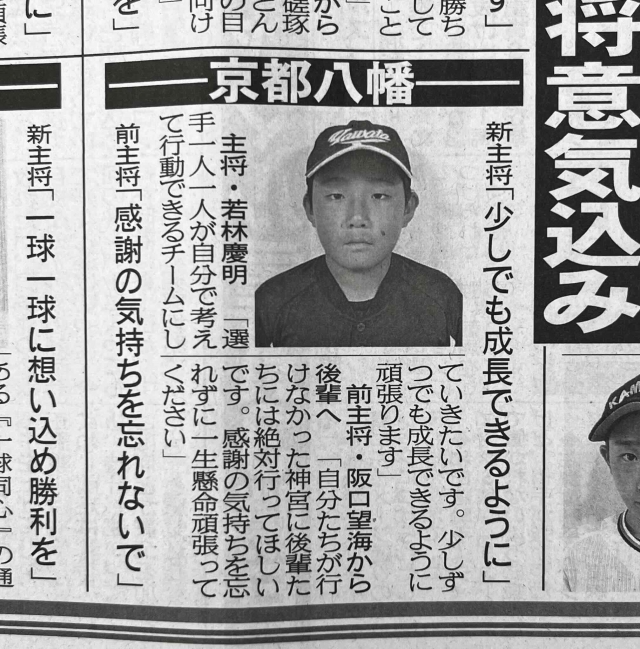 将意気込み
京都八幡
新主将「少しでも成長できるように」
Yawata
主将・若林慶明　「選
手一人一人が自分で考え
て行動できるチームにし
ていきたいです。少しず
つでも成長できるように
頑張ります」
前主将・阪口望海から
後輩へ　「自分たちが行
けなかった神宮に後輩た
ちには絶対行ってほしい
です。感謝の気持ちを忘
れずに一生懸命頑張って
ください」
前主将「感謝の気持ちを忘れないで」
新主将「一球一球に想い込め勝利を」
ある『一球同心』の通